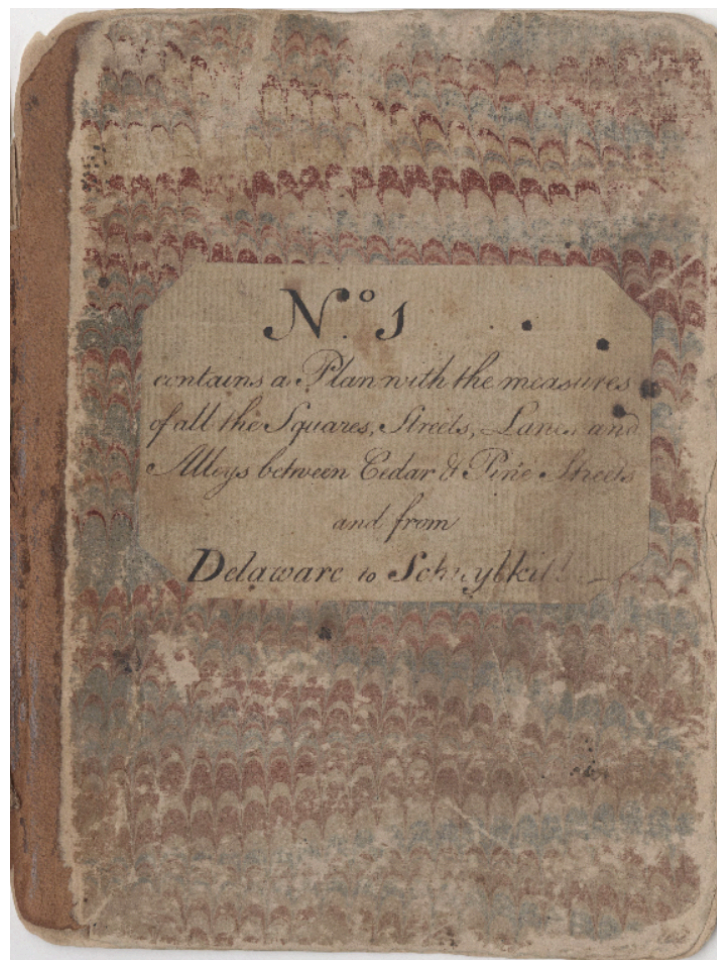 No. 1
contains a Plan with the measures
of all the Squares, Streets, Lanes and
Alleys between Cedar & Pine Streets
and from
Delaware to Schuylkill